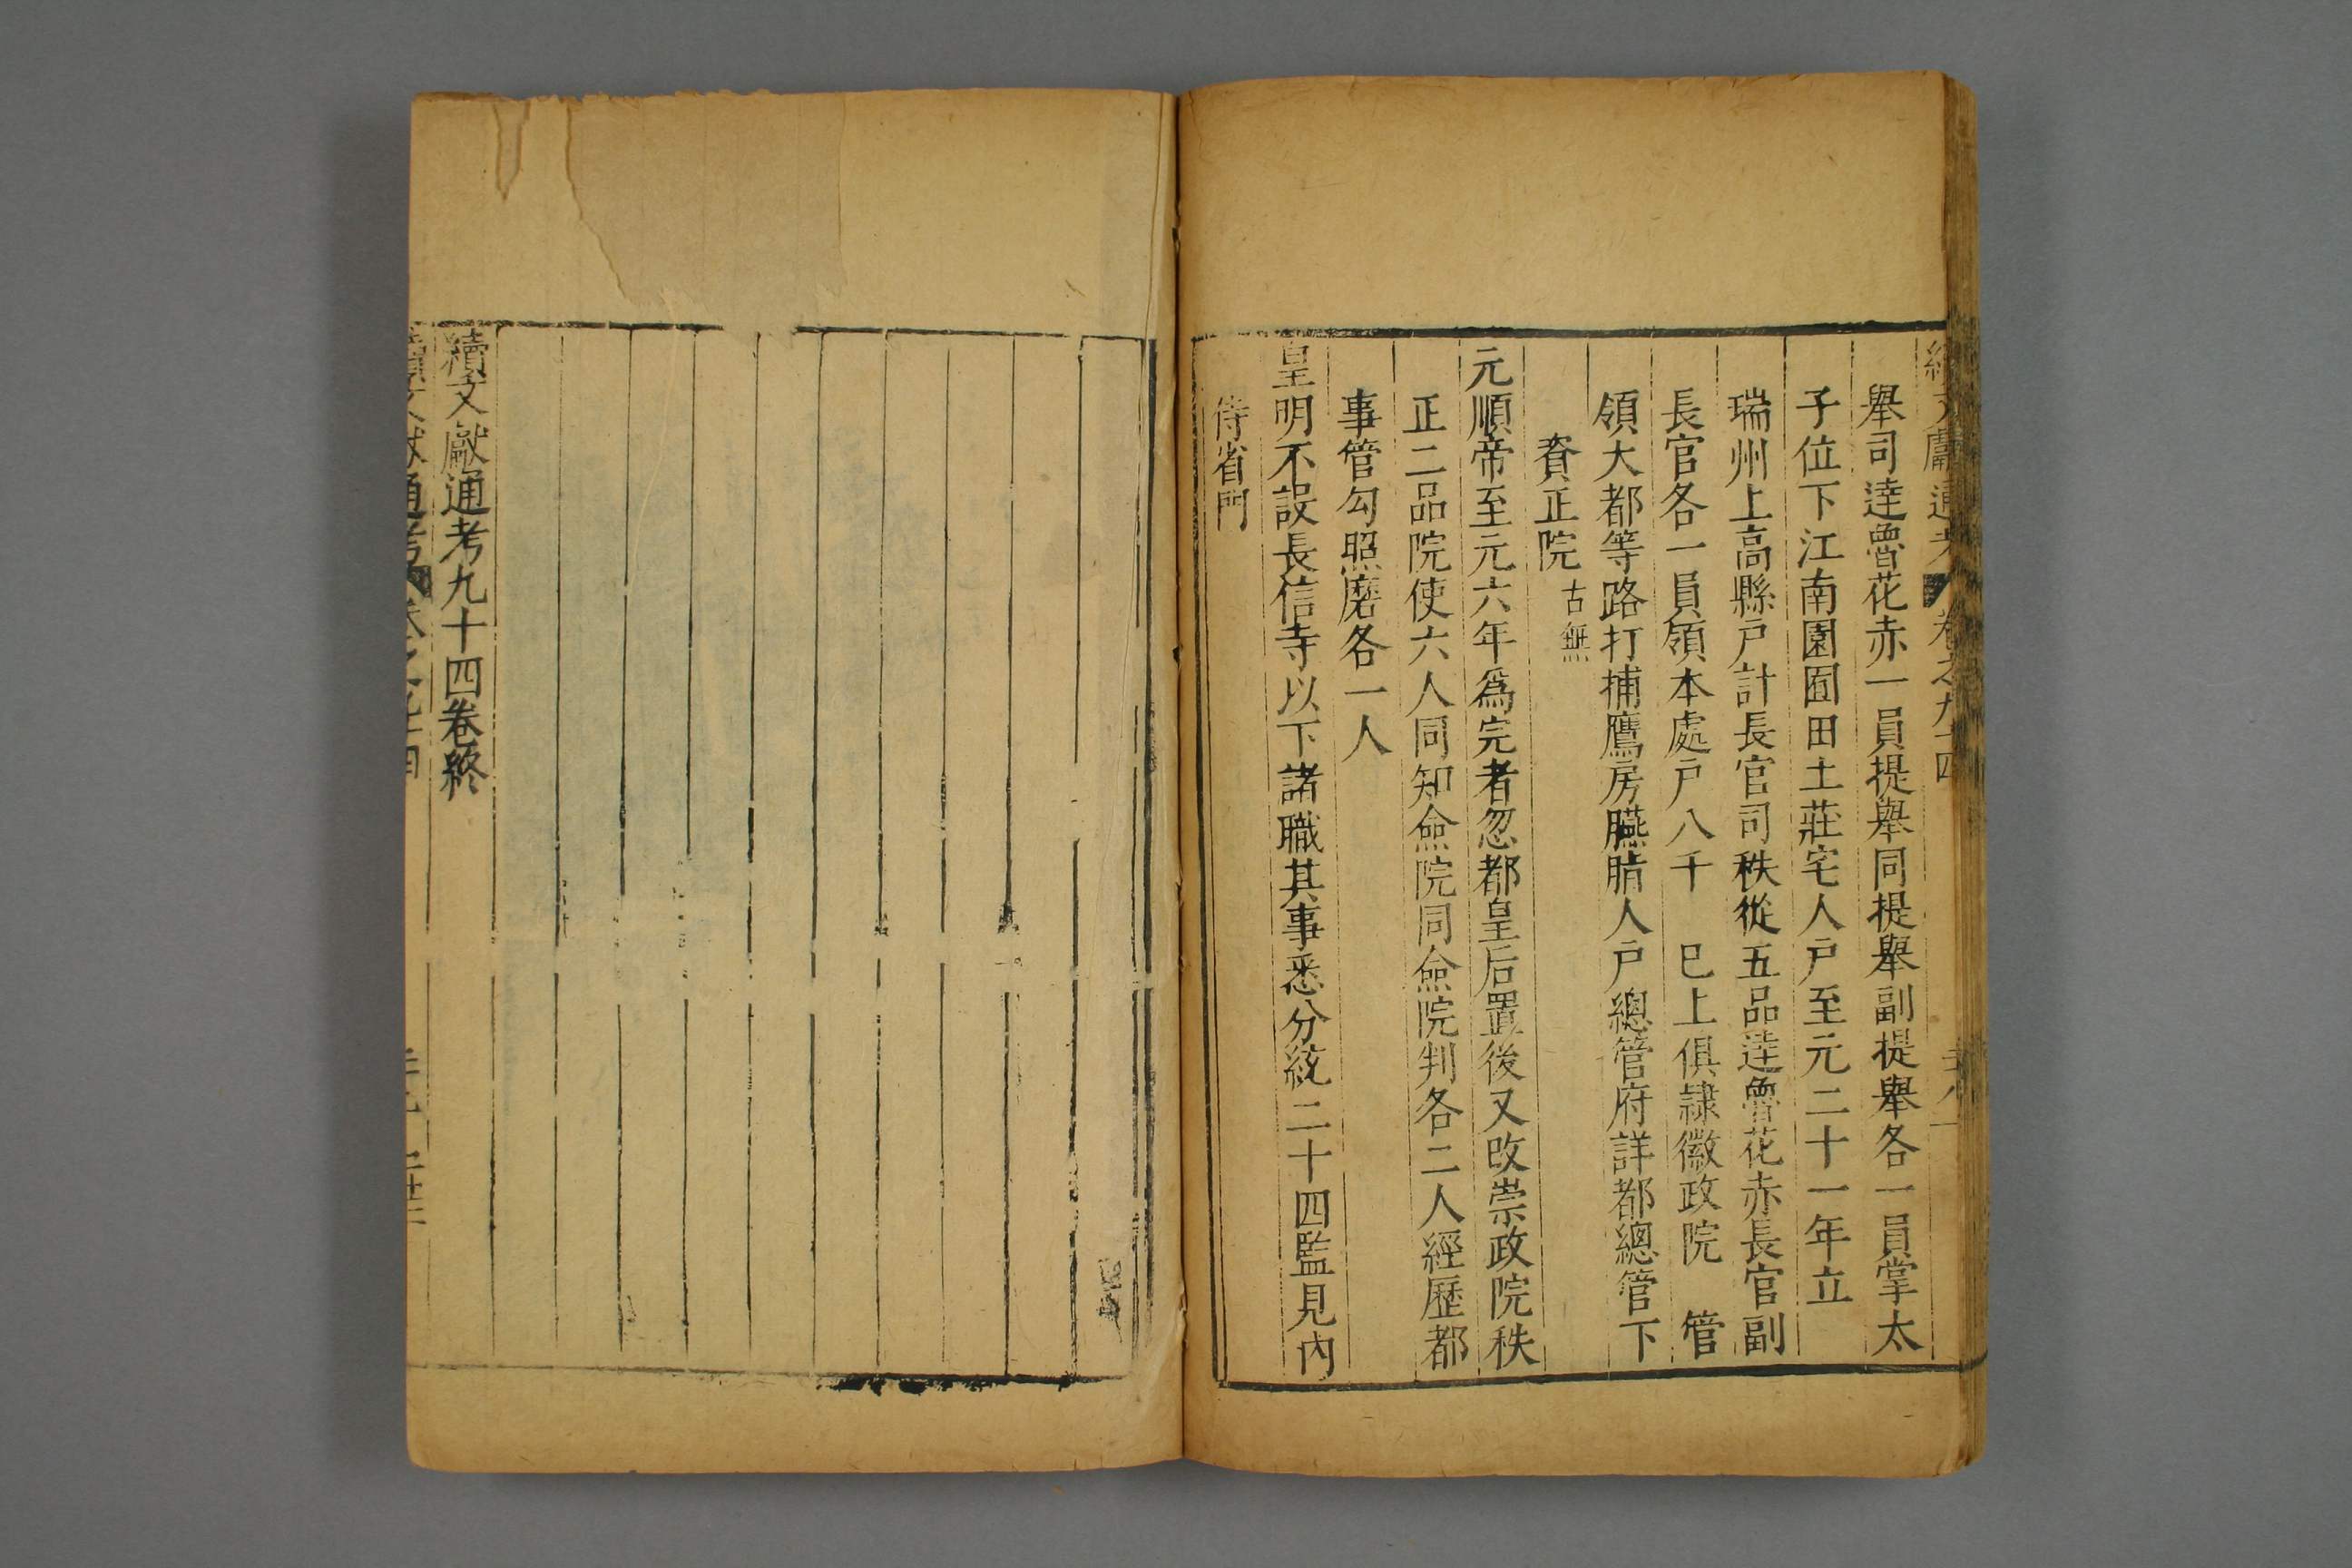 舉司達魯花赤一員提舉同提舉副提舉各一員掌太
子位下江南園囿田土莊宅人戶至元二十一年立
瑞州上高縣戶計長官司秩從五品達魯花赤長官副
長官各一員領本處戶八千　巳上俱隷徽政院　管
領大都等路打捕鷹房臙脂人戶總管府詳都總管下
資正院 古無
元順帝至元六年為完者忽都皇后置後又改崇政院秩
正二品院使六人同知僉院同僉院判各二人經歷都
事管勾照磨各一人
皇明不設長信寺以下諸職其事悉分統二十四監見內
侍省門
續文獻通考九十四卷終